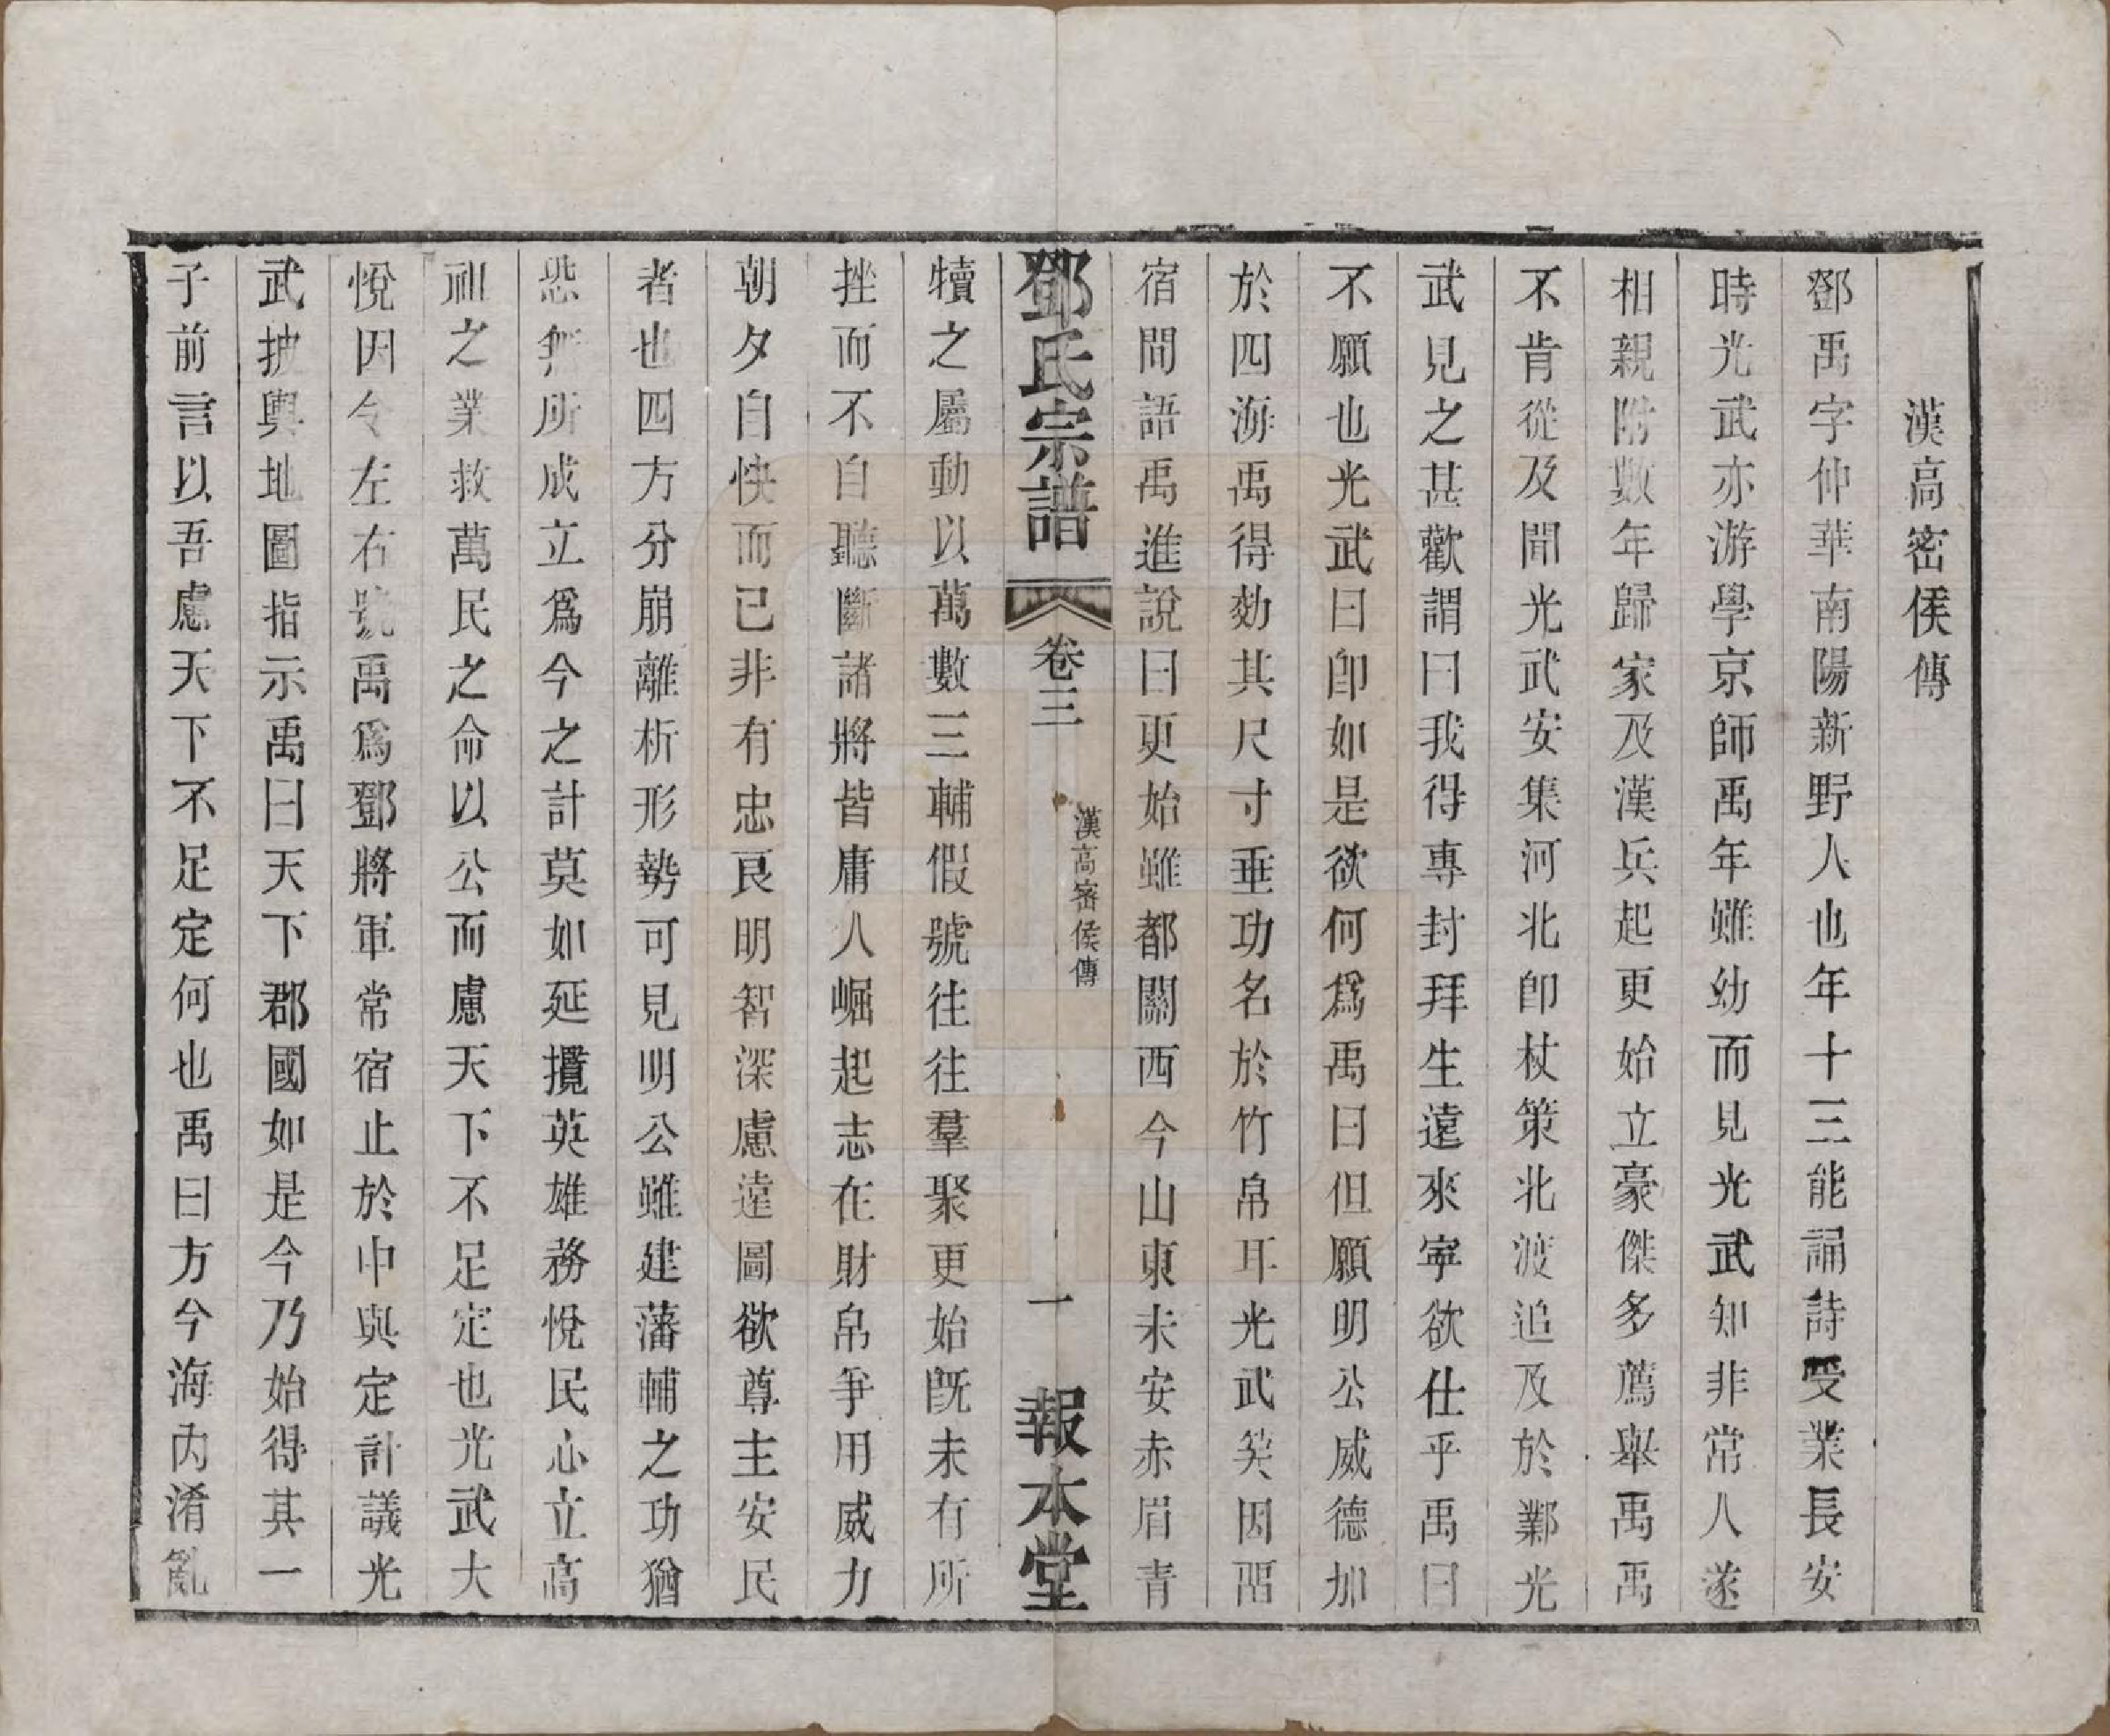 漢高密侯傳
鄧禹字仲華南陽新野人也年十三能誦詩受業長安
時光武亦游學京師禹年雖幼而見光武知非常人遂
相親附數年歸家及漢兵起更始立豪傑多薦舉禹禹
不肯從及聞光武安集河北卽杖策北渡追及於鄴光
武見之甚歡謂曰我得專封拜生遠來寧欲仕乎禹曰
不願也光武曰卽如是欲何爲禹曰但願明公威德加
於四海禹得効其尺寸垂功名於竹帛耳光武笑因留
宿間語禹進說曰更始雖都關西今山東未安赤眉青
鄧氏宗譜 卷三 漢高密侯傳 一 報本堂
犢之屬動以萬數三輔假號往往羣聚更始旣未有所
挫而不自聽斷諸將皆庸人崛起志在財帛爭用威力
朝夕自快而已非有忠良明智深慮遠圖欲尊主安民
者也四方分崩離析形勢可見明公雖建藩輔之功猶
恐無所成立爲今之計莫如延攬英雄務悅民心立高
祖之業救萬民之命以公而慮天下不足定也光武大
悅因令左右號禹爲鄧將軍常宿止於中與定計議光
武披輿地圖指示禹曰天下郡國如是今乃始得其一
子前言以吾慮天下不足定何也禹曰方今海內淆亂